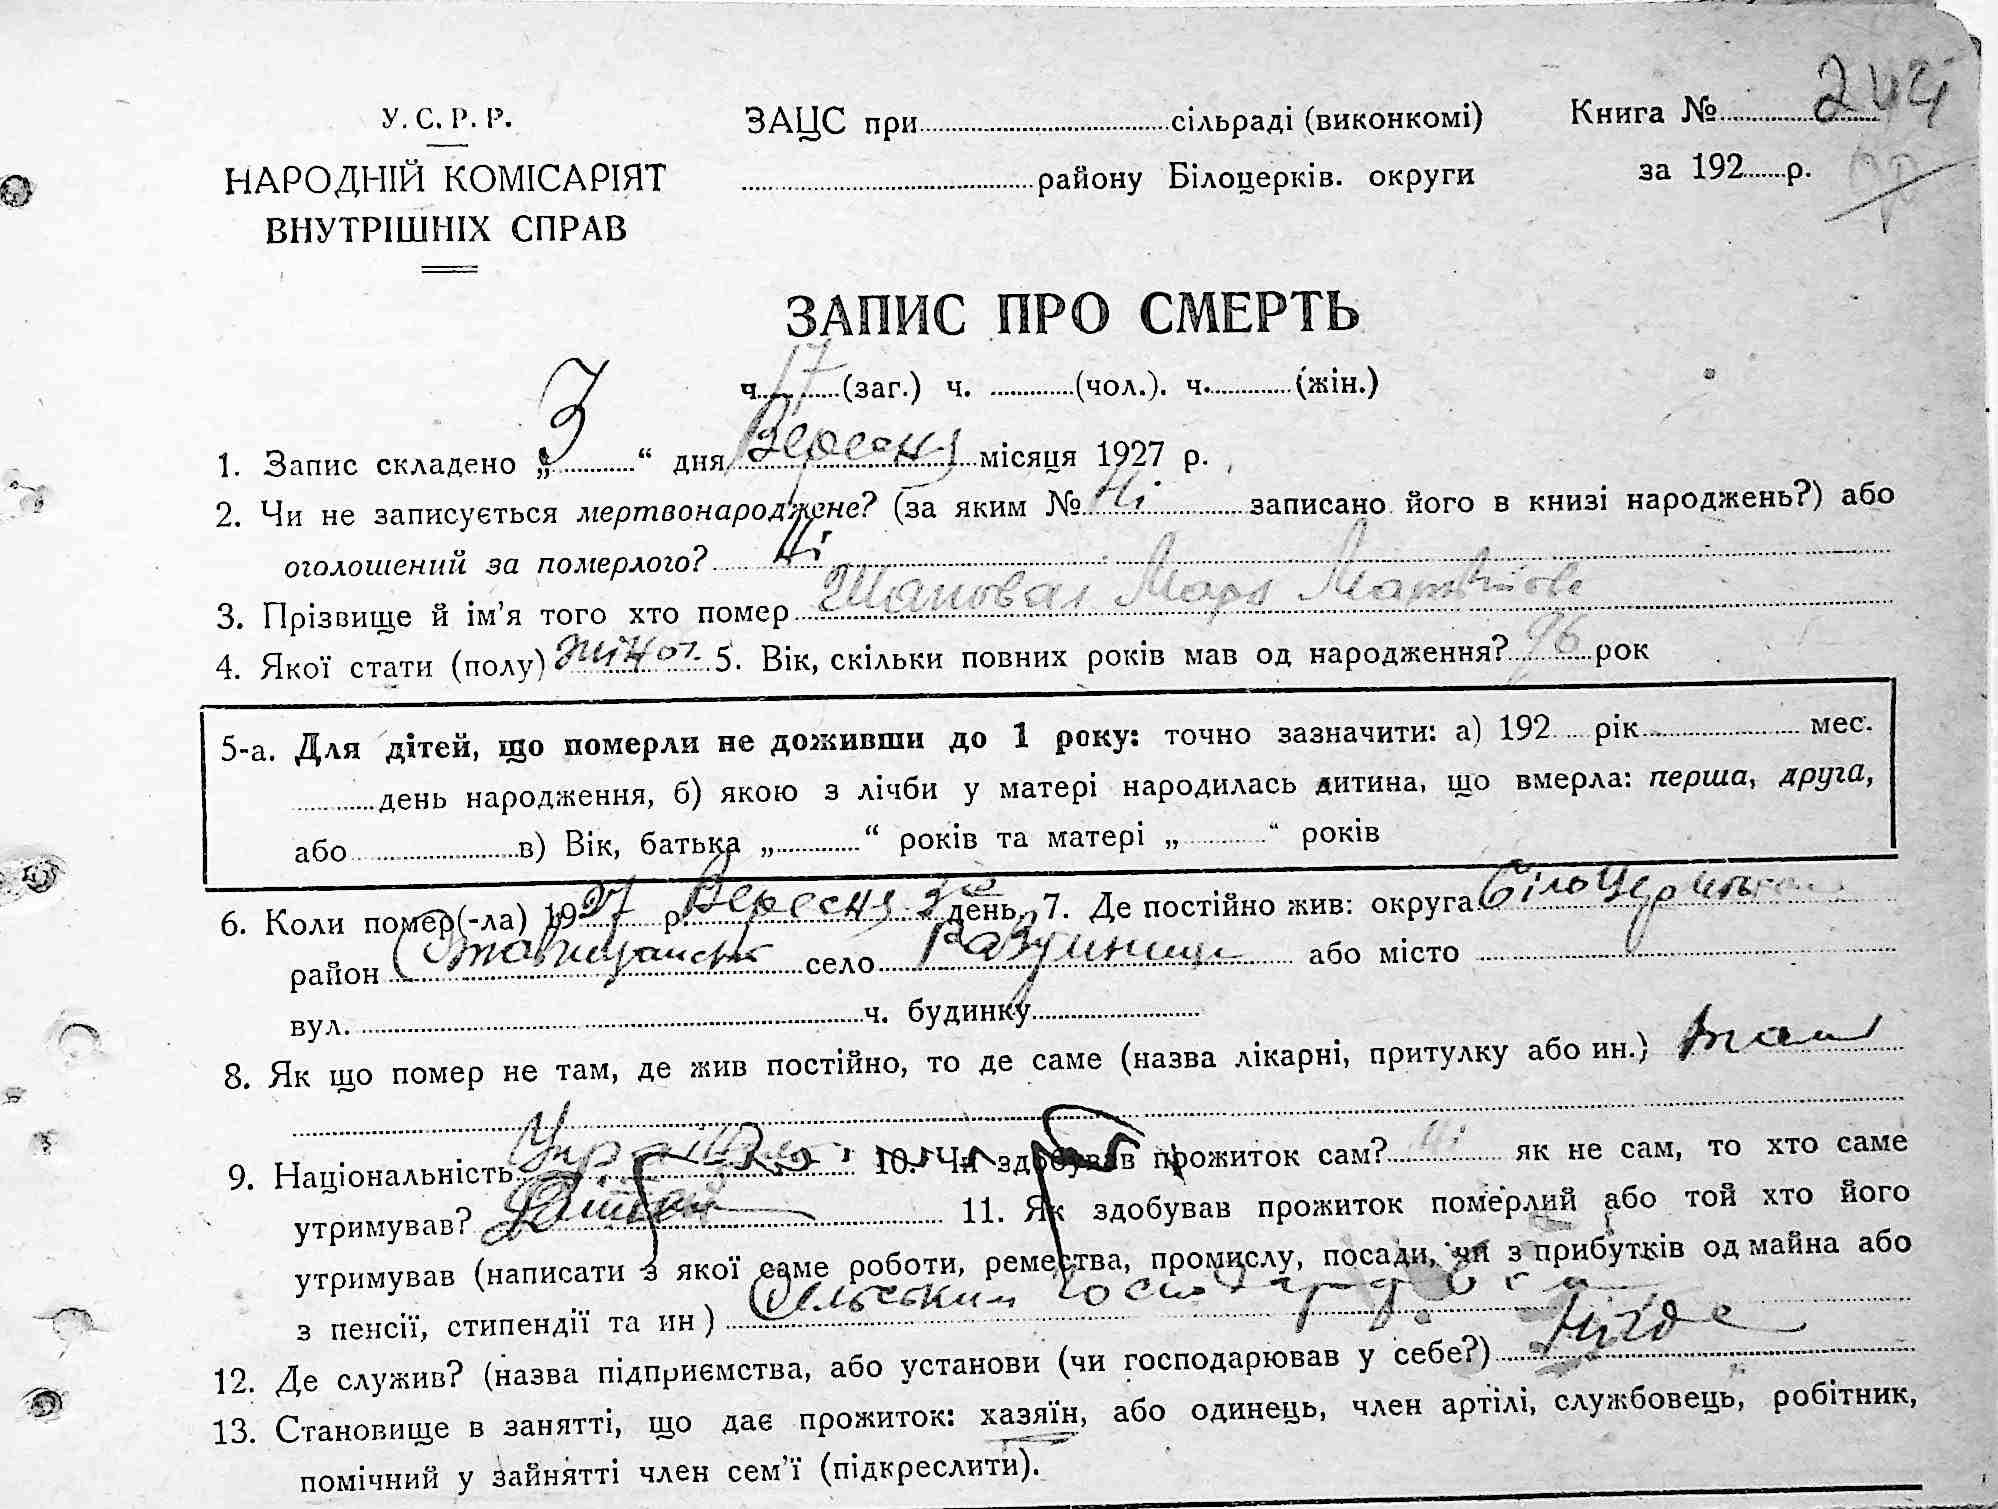 У. С. Р. Р.
НАРОДНІЙ КОМІСАРІЯТ
ВНУТРІШНІХ СПРАВ
ЗАЦС при сільраді (виконкомі)
району Білоцерків. округи
Книга №
за 192 р.
ЗАПИС ПРО СМЕРТЬ
ч. 17 (заг.) ч. (чол.). ч. (жін.)
1. Запис складено „ 3 “ дня Вересня місяця 1927 р.
2. Чи не записується мертвонароджене? (за яким № Ні записано його в книзі народжень?) або
оголошений за померлого? Ні
3. Прізвище й ім’я того хто помер Шаповал
4. Якої стати (полу) жіноч. 5. Вік, скільки повних років мав од народження? рок
5-а. Для дітей, що померли не доживши до 1 року: точно зазначити: а) 192 рік мес.
день народження, б) якою з лічби у матері народилась дитина, що вмерла: перша, друга,
або в) Вік, батька „ “ років та матері „ “ років
6. Коли помер(-ла) 1927 р. Вересня день. 7. Де постійно жив: округа
район Ставищанськ село або місто
вул. ч. будинку
8. Як що помер не там, де жив постійно, то де саме (назва лікарні, притулку або ин.) там
9. Національність 10. Чи здобував прожиток сам? ні як не сам, то хто саме
утримував? 11. Як здобував прожиток померлий або той хто його
утримував (написати з якої саме роботи, ремества, промислу, посади, чи з прибутків од майна або
з пенсії, стипендії та ин) Сільським
12. Де служив? (назва підприємства, або установи (чи господарював у себе?) Нігде
13. Становище в занятті, що дає прожиток: хазяїн, або одинець, член артілі, службовець, робітник,
помічний у зайнятті член сем’ї (підкреслити).